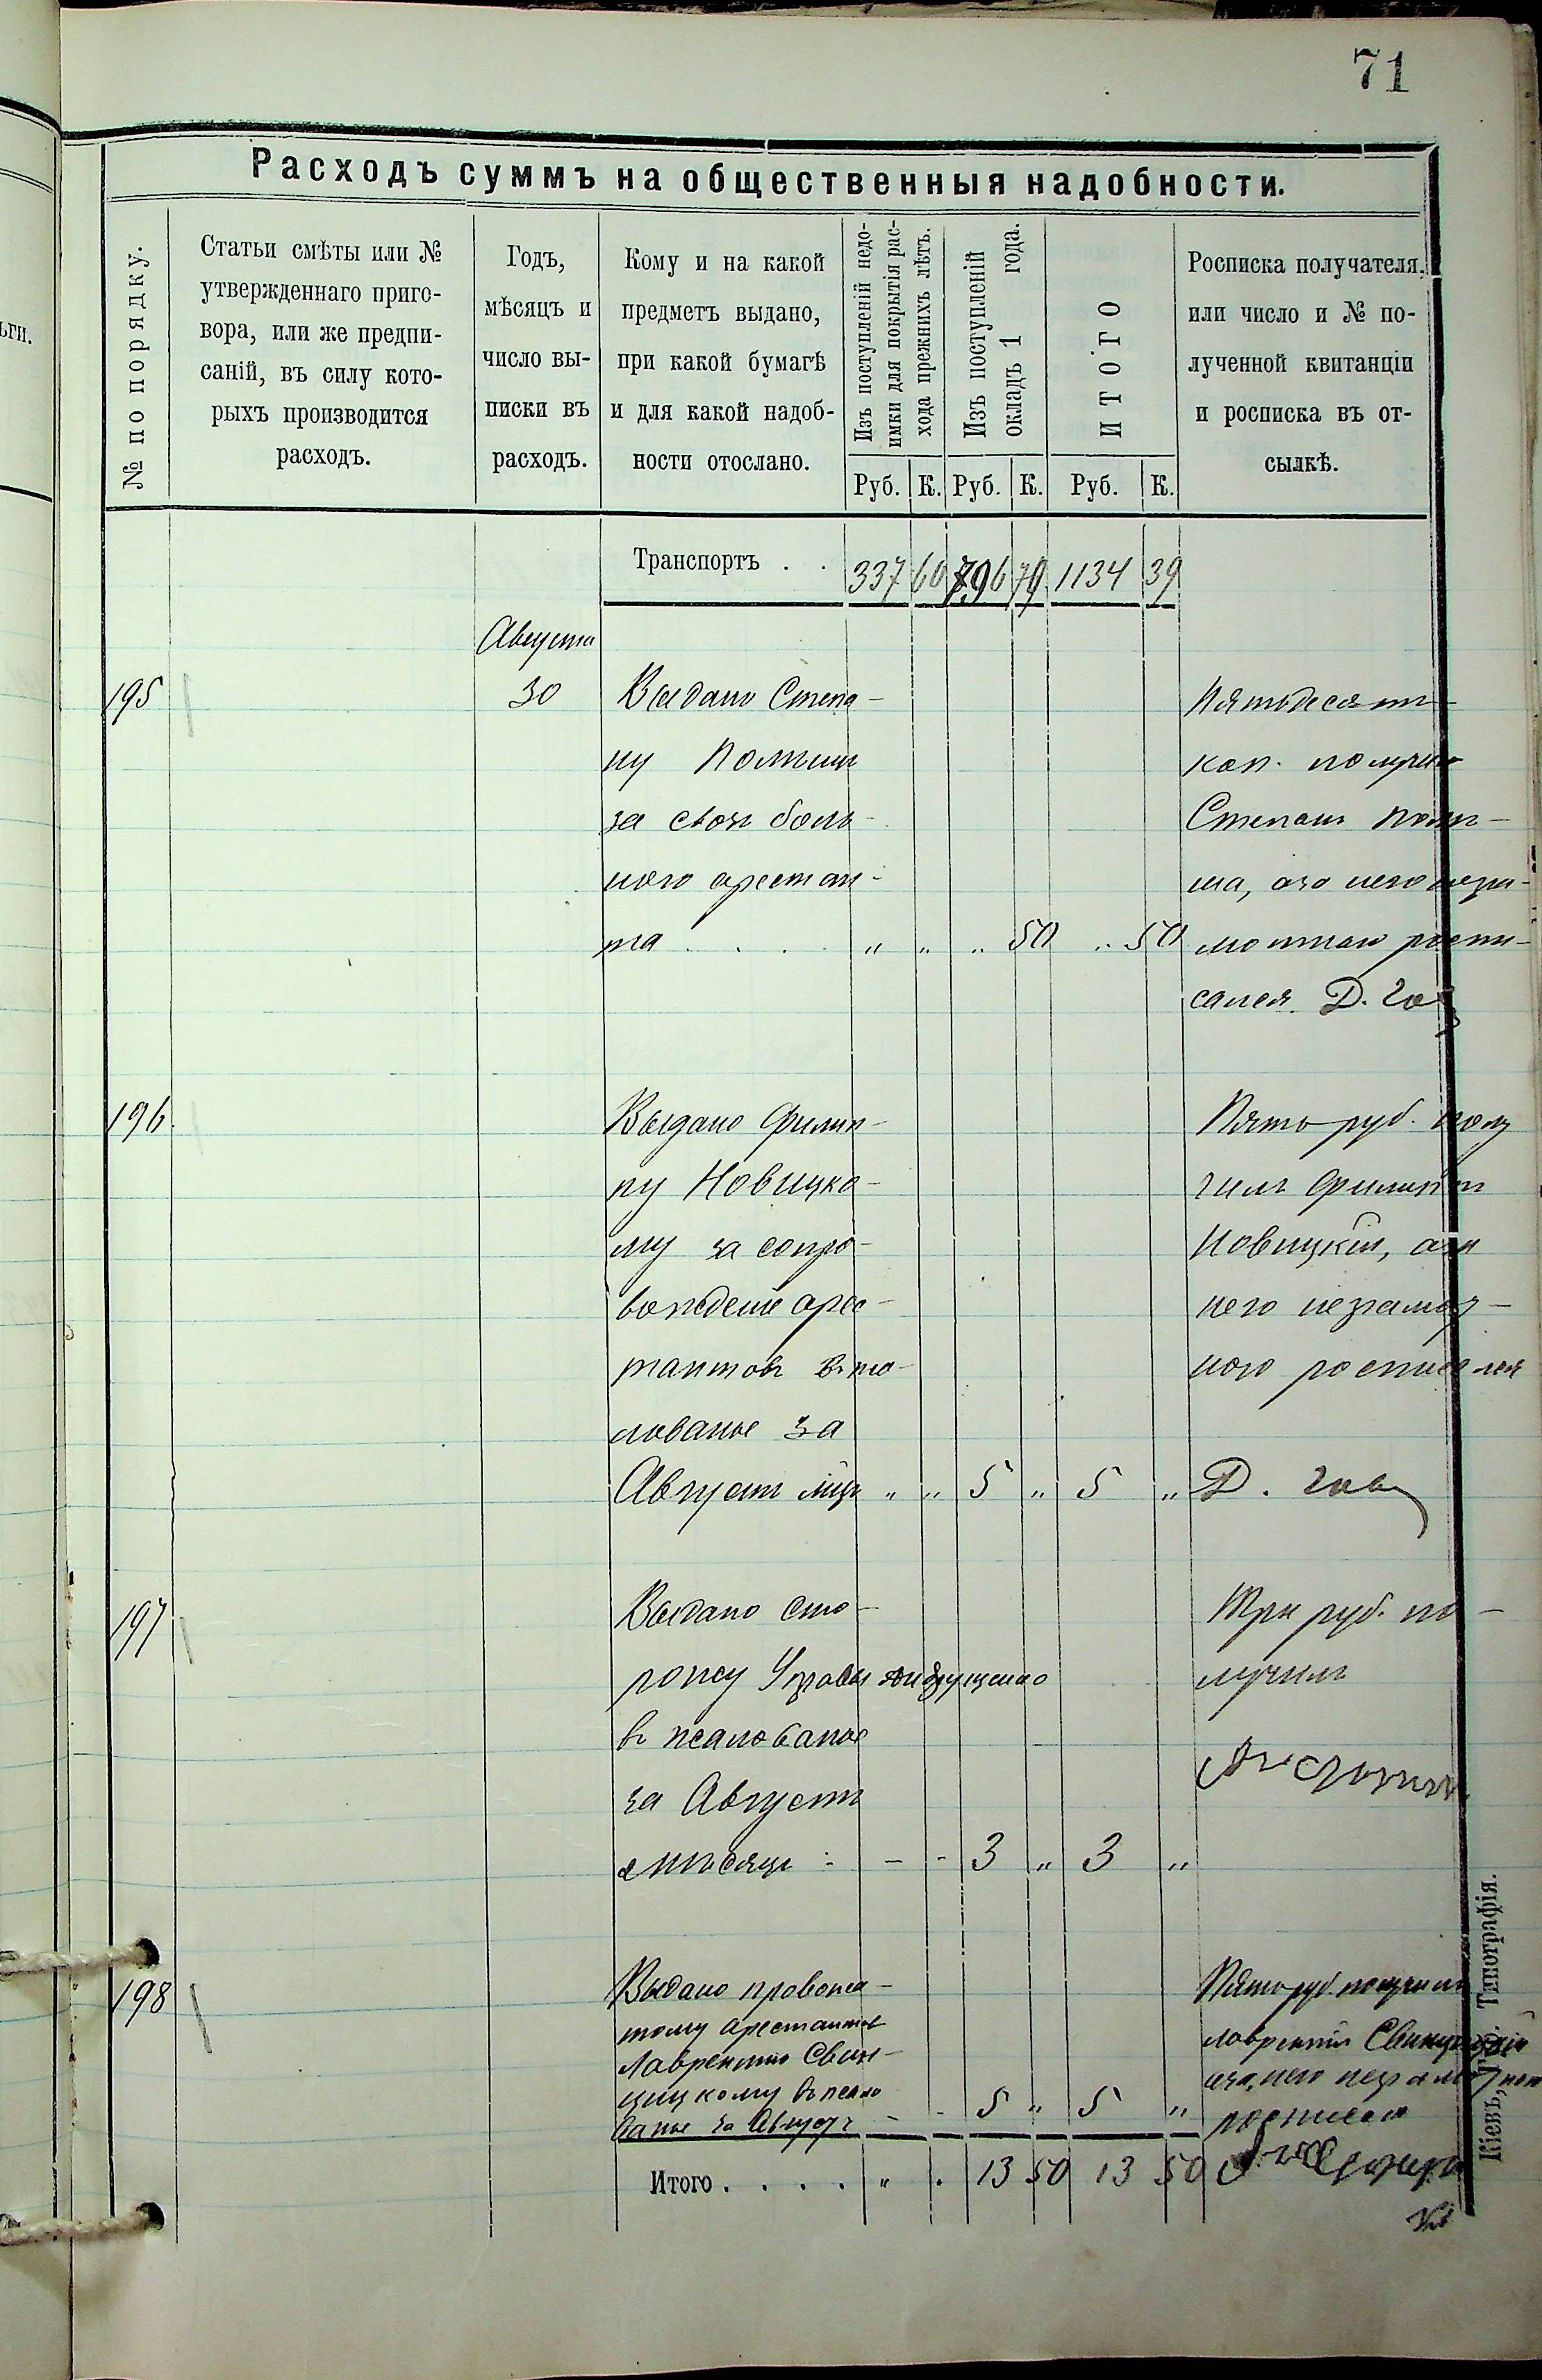 71
ьги.
Расходъ суммъ на общественныя надобности.
№ по порядку.
Статьи смѣты или №
утвержденнаго приго-
вора, или же предпи-
саній, въ силу кото-
рыхъ производится
расходъ.
Годъ,
мѣсяцъ и
число вы-
писки въ
расходъ.
Кому и на какой
предметъ выдано,
при какой бумагѣ
и для какой надоб-
ности отослано.
Изъ поступленій недо-
имки для покрытія рас-
хода прежнихъ лѣтъ.
Изъ поступленій
окладъ 1 года.
ИТОГО
Руб. К. Руб. К. Руб. К.
Росписка получателя,
или число и № по-
лученной квитанціи
и росписка въ от-
сылкѣ.
Транспортъ . . 337 60 796 79 1134 39
Августа
195
30
Выдано Степа-
ну
за свозъ боль-
ного арестан-
та . . . „ „ „ 50 „ 50
Пятьдесятъ
коп. получилъ
Степанъ
сался. Д.
196
Выдано Филип-
пу Новицко-
му за сопро-
вожденіе арес-
тантовъ в жа-
лованье за
Августъ мцъ „ „ 5 „ 5 „
Пять руб. полу
чилъ Филиппъ
Новицкій, а за
него неграмот-
ного росписался
Д.
197
Выдано сто-
рожу Управы
в жалованье
за Августъ
мѣсяцъ - - - 3 „ 3 „
Три руб. по-
лучилъ
198
Выдано провожа-
тому арестантовъ
Лаврентію Свин-
цицкому въ жало
ванье за Августъ - - 5 „ 5 „
Пять руб. получилъ
Лаврентій Свинцицкій
а за него неграмотного
росписался
Итого . . . . „ . 13 50 13 50
Кіевъ, Типографія.